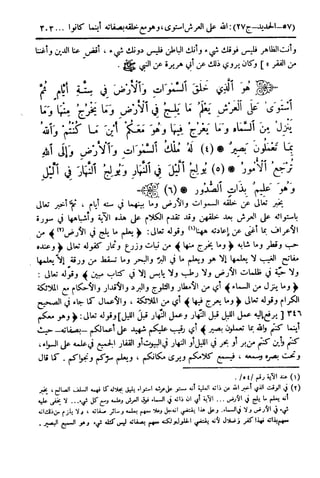 (٥٧-الحديد-ج٢٧): الله على العرش استوى، وهو مع خلقه بصفاته أينما كانوا ... ٣٠٣
وأنت الظاهر فليس فوقك شيء، وأنت الباطن فليس دونك شيء، أقض عنا الدين وأغننا
من الفقر» وكان يروي ذلك عن أبي هريرة عن النبي ﷺ.
هُوَ ٱلَّذِي خَلَقَ ٱلسَّمَٰوَٰتِ وَٱلْأَرْضَ فِي سِتَّةِ أَيَّامٍ ثُمَّ
ٱسْتَوَىٰ عَلَى ٱلْعَرْشِ يَعْلَمُ مَا يَلِجُ فِي ٱلْأَرْضِ وَمَا يَخْرُجُ مِنْهَا وَمَا
يَنزِلُ مِنَ ٱلسَّمَآءِ وَمَا يَعْرُجُ فِيهَا وَهُوَ مَعَكُمْ أَيْنَ مَا كُنتُمْ وَٱللَّهُ
بِمَا تَعْمَلُونَ بَصِيرٌ (٤) لَّهُ مُلْكُ ٱلسَّمَٰوَٰتِ وَٱلْأَرْضِ وَإِلَى ٱللَّهِ
تُرْجَعُ ٱلْأُمُورُ (٥) يُولِجُ ٱلَّيْلَ فِي ٱلنَّهَارِ وَيُولِجُ ٱلنَّهَارَ فِي ٱلَّيْلِ
وَهُوَ عَلِيمٌ بِذَاتِ ٱلصُّدُورِ (٦)
يخبر تعالى عن خلقه السموات والأرض وما بينهما في ستة أيام، ثم أخبر تعالى
باستوائه على العرش بعد خلقهن وقد تقدم الكلام على هذه الآية وأشباهها في سورة
الأعراف بما أغنى عن إعادته ههنا(١) وقوله تعالى: ﴿يعلم ما يلج في الأرض(٢)﴾ من
حب وقطر وما شابه ﴿وما يخرج منها﴾ من نبات وزرع وثمار كقوله تعالى ﴿وعنده
مفاتح الغيب لا يعلمها إلا هو ويعلم ما في البر والبحر وما تسقط من ورقة إلا يعلمها
ولا حبة في ظلمات الأرض ولا رطب ولا يابس إلا في كتاب مبين﴾ وقوله تعالى:
﴿وما ينزل من السماء﴾ أي من الأمطار والثلوج والبرد والأقدار والأحكام مع الملائكة
الكرام وقوله تعالى ﴿وما يعرج فيها﴾ أي من الملائكة، والأعمال كما جاء في الصحيح
٣٤٦ [يرفع إليه عمل الليل قبل النهار وعمل النهار قبل الليل] وقوله تعالى: ﴿وهو معكم
أينما كنتم والله بما تعملون بصير﴾ أي رقيب عليكم شهيد على أعمالكم - بصفاته - حيث
كنتم وأين كنتم من بر أو بحر في الليل أو النهار في البيوت أو القفار الجميع في علمه على السواء،
وتحت بصره وسمعه، فيسمع كلامكم ويرى مكانكم، ويعلم سركم ونجواكم. كما قال
(١) عند الآية رقم /٥٤/.
(٢) في الوقت الذي أخبر الله عن ذاته العلية أنه مستو على عرشه استواء يليق بجلاله كما فهمه السلف الصالح، يخبر
أنه يعلم ما يلج في الأرض ... الآية أي ان ذاته في السماء فوق العرش وعلمه وسع كل شيء ... لا يخفى عليه
شيء في الأرض ولا في السماء،